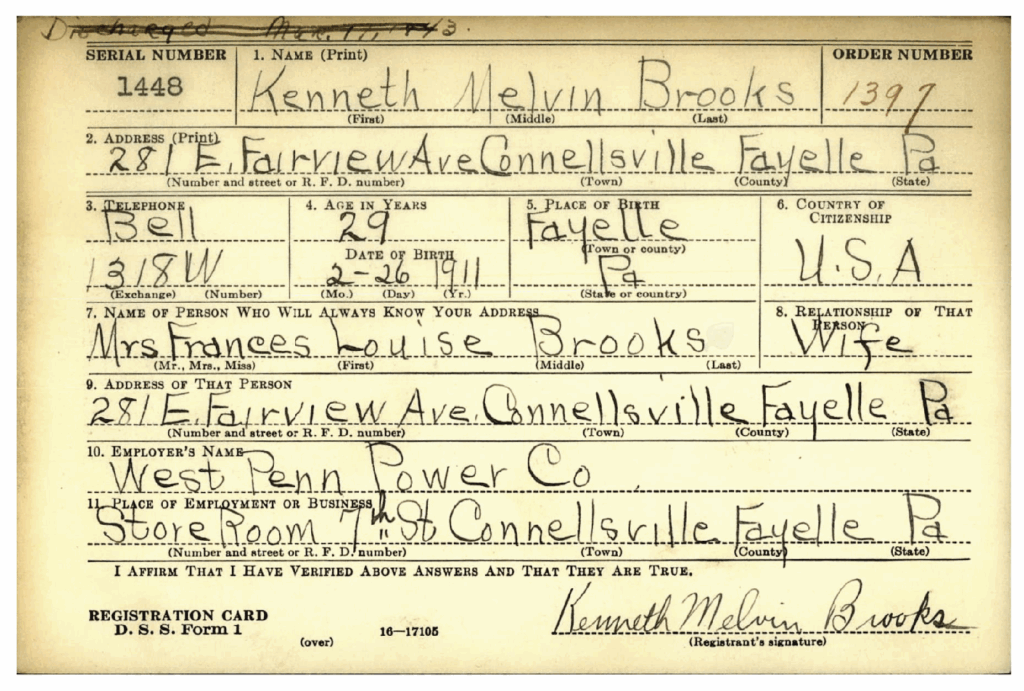 Discharged Mar. 17, 1943.
SERIAL NUMBER 1. NAME (Print) ORDER NUMBER
1448 Kenneth Melvin Brooks 1397
(First) (Middle) (Last)
2. ADDRESS (Print)
281 E. Fairview Ave Connellsville Fayelle Pa
(Number and street or R. F. D. number) (Town) (County) (State)
3. TELEPHONE 4. AGE IN YEARS 5. PLACE OF BIRTH 6. COUNTRY OF CITIZENSHIP
Bell 29 Fayelle
(Town or county)
DATE OF BIRTH
1318W 2-26 1911 Pa U.S.A
(Exchange) (Number) (Mo.) (Day) (Yr.) (State or country)
7. NAME OF PERSON WHO WILL ALWAYS KNOW YOUR ADDRESS 8. RELATIONSHIP OF THAT PERSON
Mrs Frances Louise Brooks Wife
(Mr., Mrs., Miss) (First) (Middle) (Last)
9. ADDRESS OF THAT PERSON
281 E. Fairview Ave. Connellsville Fayelle Pa
(Number and street or R. F. D. number) (Town) (County) (State)
10. EMPLOYER'S NAME
West Penn Power Co.
11. PLACE OF EMPLOYMENT OR BUSINESS
Store Room 7th St Connellsville Fayelle Pa
(Number and street or R. F. D. number) (Town) (County) (State)
I AFFIRM THAT I HAVE VERIFIED ABOVE ANSWERS AND THAT THEY ARE TRUE.
REGISTRATION CARD
D. S. S. Form 1 (over) 16—17105
Kenneth Melvin Brooks
(Registrant's signature)